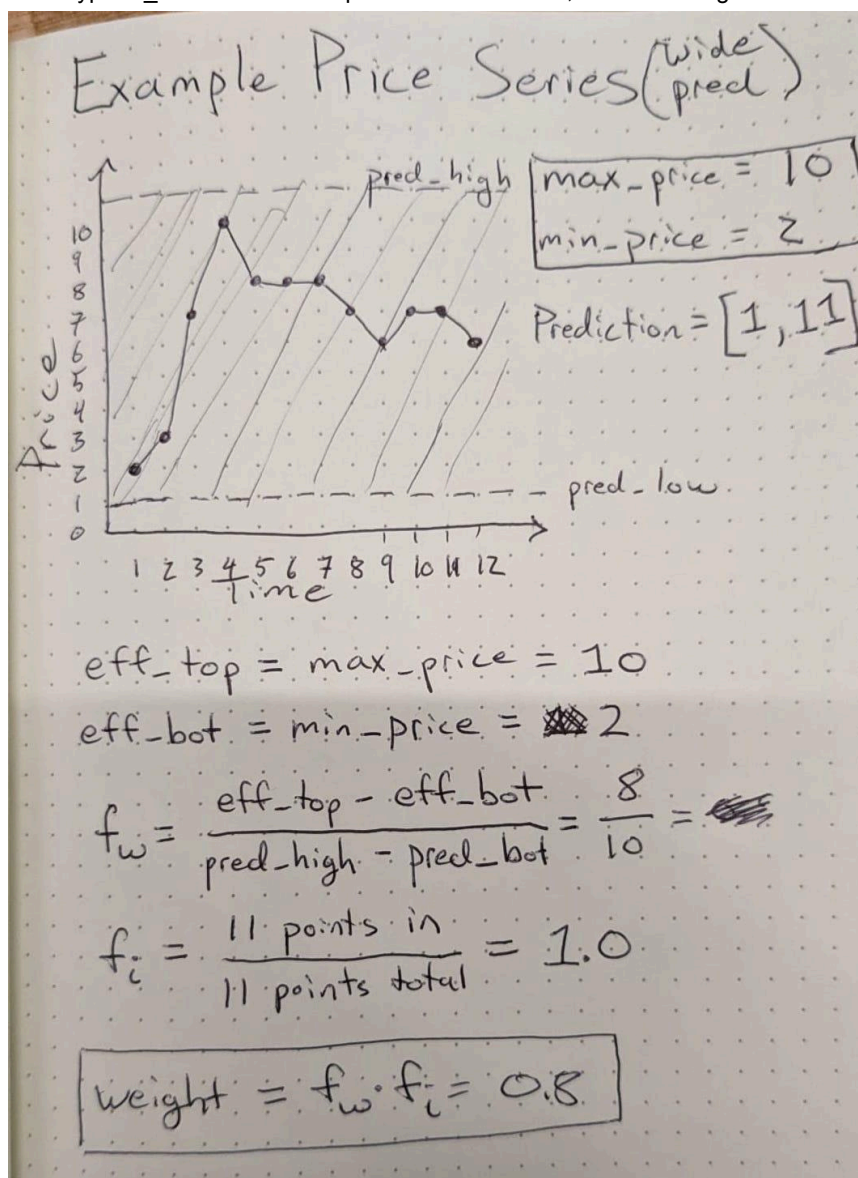 Example Price Series (wide pred)
pred_high
max_price = 10
min_price = 2
Prediction = [1, 11]
10
9
8
7
6
5
4
3
2
1
0
Price
pred_low
1 2 3 4 5 6 7 8 9 10 11 12
Time
eff_top = max_price = 10
eff_bot = min_price = 2
f_w = eff_top - eff_bot / pred_high - pred_bot = 8 / 10 =
f_i = 11 points in / 11 points total = 1.0
weight = f_w · f_i = 0.8